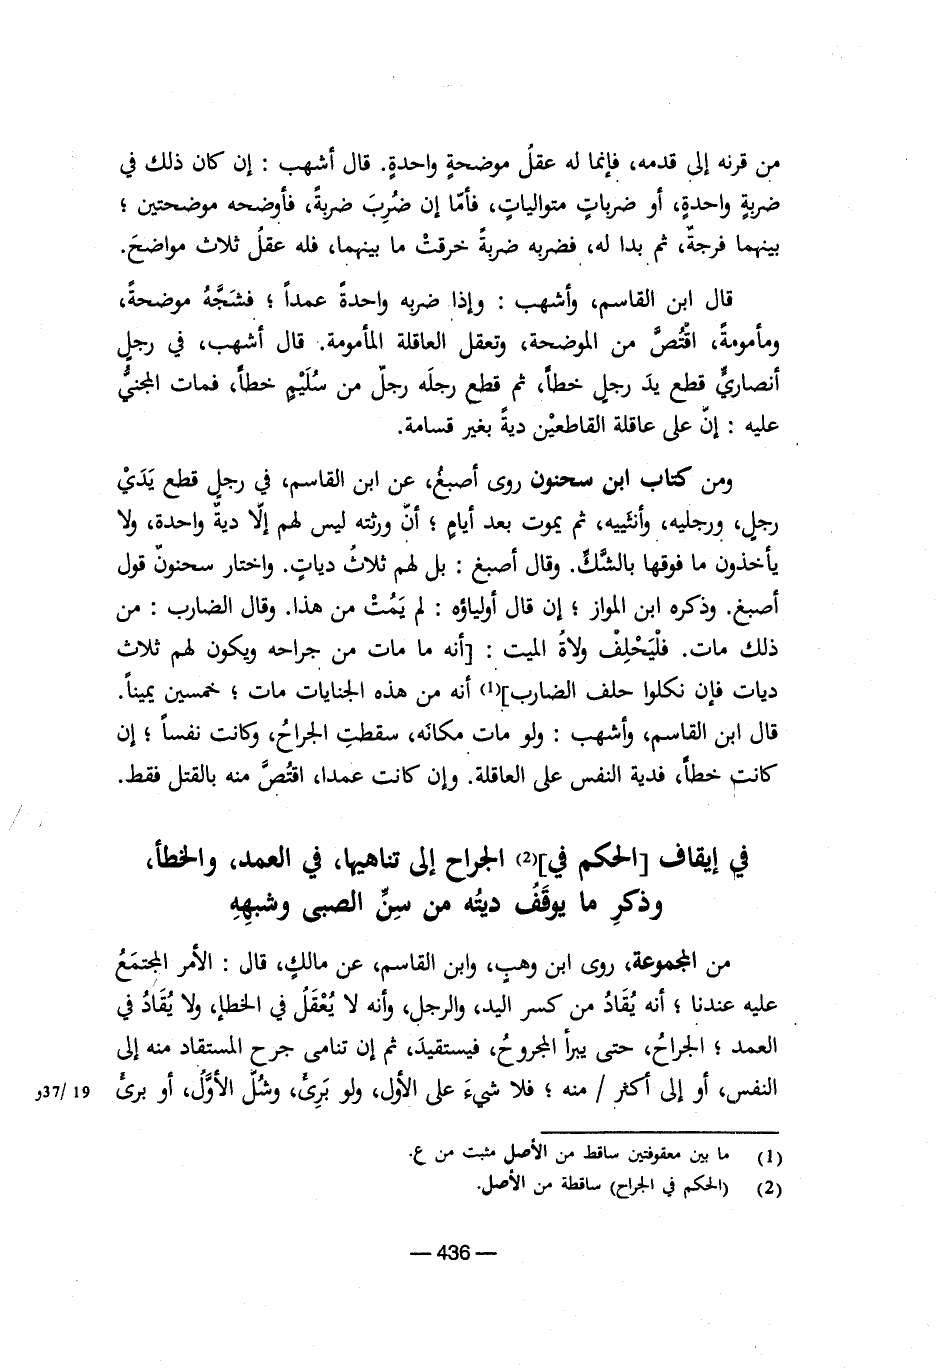 من قرنه إلى قدمه، فإنما له عقلُ موضحةٍ واحدةٍ. قال أشهب : إن كان ذلك في
ضربةٍ واحدةٍ، أو ضرباتٍ متوالياتٍ، فأمّا إن ضُرِبَ ضربةً، فأوضحه موضحتين ؛
بينهما فرجةٌ، ثم بدا له، فضربه ضربةً خرقتْ ما بينهما، فله عقلُ ثلاث مواضحَ.
قال ابن القاسم، وأشهب : وإذا ضربه واحدةً عمداً ؛ فشَجَّهُ موضحةً،
ومأمومةً، اقْتُصَّ من الموضحة، وتعقل العاقلة المأمومة. قال أشهب، في رجلٍ
أنصاريٍّ قطع يدَ رجلٍ خطأً، ثم قطع رجلَه رجلٌ من سُلَيْمٍ خطأً، فمات المجنيُّ
عليه : إنّ على عاقلة القاطعيْن ديةً بغير قسامة.
ومن كتاب ابن سحنون روى أصبغُ، عن ابن القاسم، في رجلٍ قطع يَدَيْ
رجلٍ، ورجليه، وأنثَييه، ثم يموت بعد أيامٍ ؛ أنّ ورثته ليس لهم إلّا ديةٌ واحدة، ولا
يأخذون ما فوقها بالشَّكِّ. وقال أصبغ : بل لهم ثلاثُ دياتٍ. واختار سحنونٌ قول
أصبغ. وذكره ابن المواز ؛ إن قال أولياؤه : لم يَمُتْ من هذا. وقال الضارب : من
ذلك مات. فلْيَحْلِفْ ولاةُ الميت : [أنه ما مات من جراحه ويكون لهم ثلاث
ديات فإن نكلوا حلف الضارب](1) أنه من هذه الجنايات مات ؛ خمسين يميناً.
قال ابن القاسم، وأشهب : ولو مات مكانَه، سقطتِ الجراحُ، وكانت نفساً ؛ إن
كانت خطأً، فدية النفس على العاقلة. وإن كانت عمدا، اقتُصَّ منه بالقتل فقط.
في إيقاف [الحكم في](2) الجراح إلى تناهيها، في العمد، والخطأ،
وذكرِ ما يوقَفُ ديتُه من سِنِّ الصبى وشبهِهِ
من المجموعة، روى ابن وهبٍ، وابن القاسم، عن مالكٍ، قال : الأمر المجتمَعُ
عليه عندنا ؛ أنه يُقَادُ من كسر اليد، والرجل، وأنه لا يُعْقَلُ في الخطإ، ولا يُقَادُ في
العمد ؛ الجراحُ، حتى يبرأ المجروحُ، فيستقيدَ، ثم إن تنامى جرح المستقاد منه إلى
النفس، أو إلى أكثر / منه ؛ فلا شيءَ على الأول، ولو بَرِئُ، وشُلّ الأوَّلُ، أو برئُ 19 /37و
(1) ما بين معقوفتين ساقط من الأصل مثبت من ع.
(2) (الحكم في الجراح) ساقطة من الأصل.
— 436 —